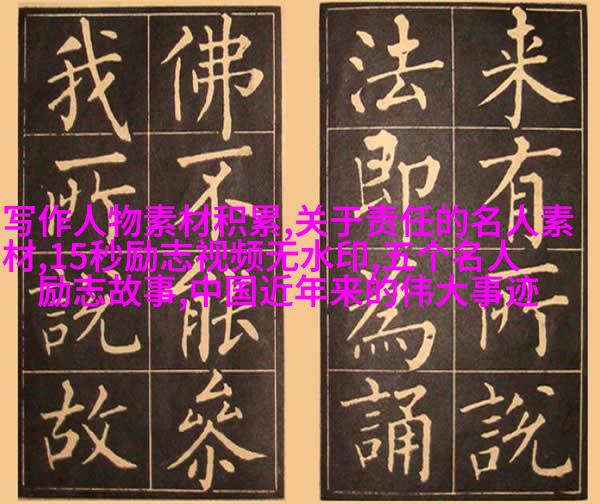 来有所說
法即為誦
佛不能參
我所說故
写作人物素材积累,关于责任的名人素
材,15秒励志视频无水印,五个名人
励志故事,中国近年来的伟大事迹